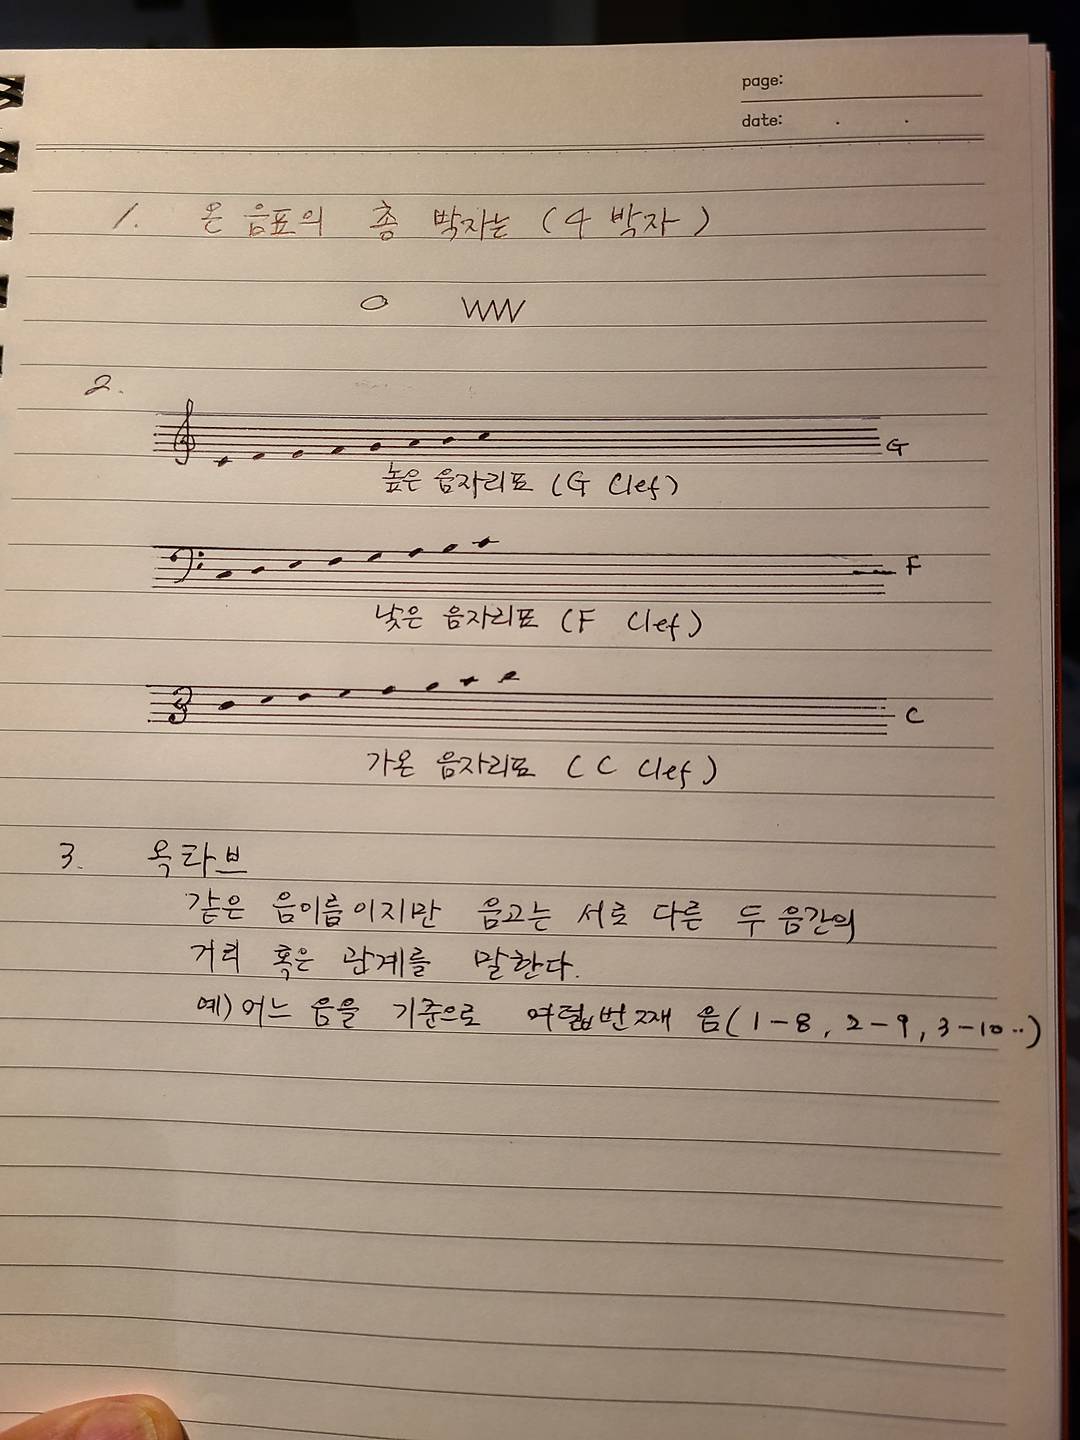 page:
date: . .
1. 온 음표의 총 박자는 (4 박자)
2.
G
높은 음자리표 (G Clef)
F
낮은 음자리표 (F Clef)
C
가온 음자리표 (C Clef)
3. 옥타브
같은 음이름이지만 음고는 서로 다른 두 음간의
거리 혹은 관계를 말한다.
예) 어느 음을 기준으로 여덟번째 음(1-8, 2-9, 3-10..)